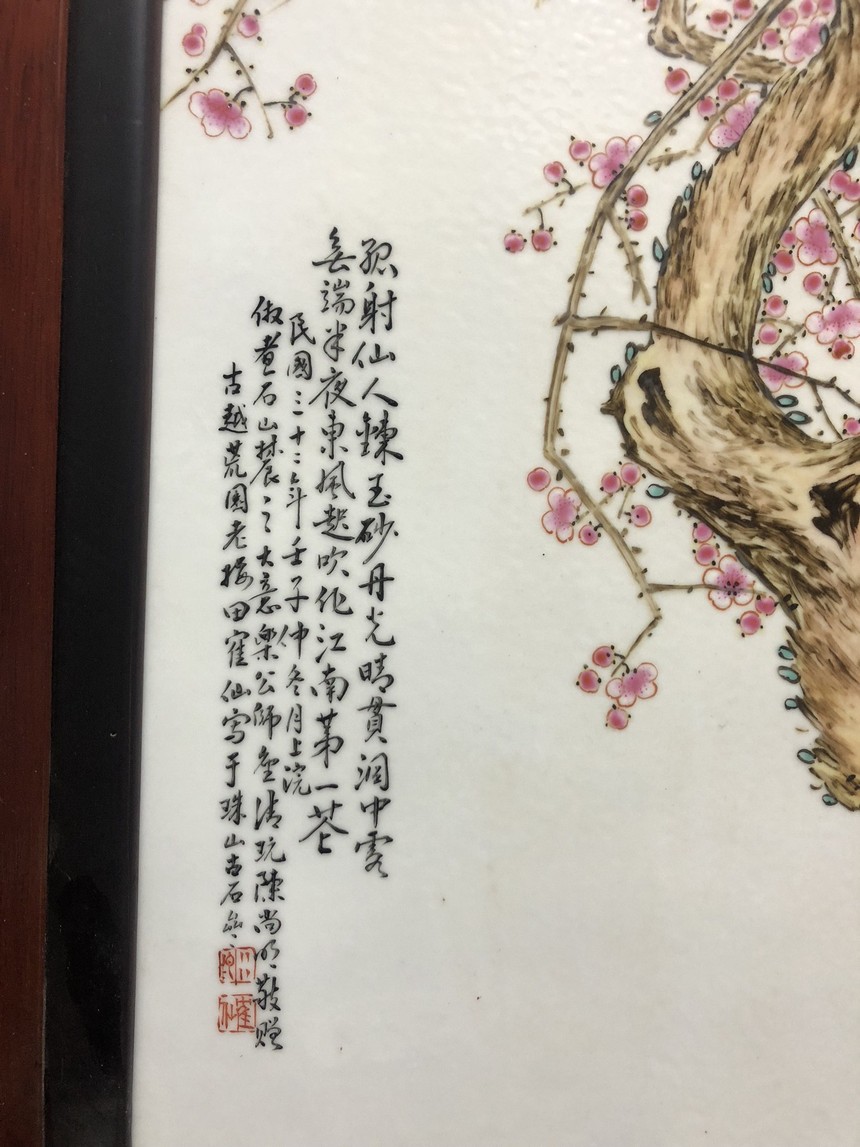 孤射仙人鍊玉砂丹光晴貫洞中霞
無端半夜東風起吹作江南第一花
民國三十二年壬子仲冬月上浣
倣煮石山農之大意樂公師座清玩陳尚明敬贈
古越荒園老梅田隺仙寫于珠山古石
隺仙